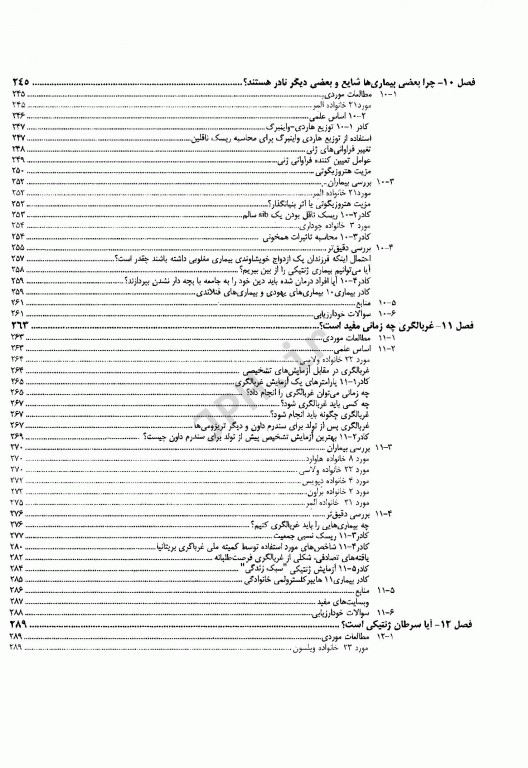 فصل ۱۰- چرا بعضی بیماری‌ها شایع و بعضی دیگر نادر هستند؟ ۲۴۵
۱۰-۱ مطالعات موردی ۲۴۵
مورد ۲۱ خانواده المر ۲۴۵
۱۰-۲ اساس علمی ۲۴۶
کادر ۱-۱۰ توزیع هاردی-واینبرگ ۲۴۷
استفاده از توزیع هاردی واینبرگ برای محاسبه ریسک ناقلین ۲۴۷
تغییر فراوانی‌های ژنی ۲۴۸
عوامل تعیین کننده فراوانی ژنی ۲۴۹
مزیت هتروزیگوتی ۲۵۰
۱۰-۳ بررسی بیماران ۲۵۲
مورد ۲۱ خانواده المر ۲۵۲
مزیت هتروزیگوتی یا اثر بنیانگذار؟ ۲۵۲
کادر ۲-۱۰ ریسک ناقل بودن یک sib سالم ۲۵۳
مورد ۳ خانواده چوداری ۲۵۴
کادر ۳-۱۰ محاسبه تاثیرات همخونی ۲۵۴
۱۰-۴ بررسی دقیق‌تر ۲۵۵
احتمال اینکه فرزندان یک ازدواج خویشاوندی بیماری مغلوبی داشته باشند چقدر است؟ ۲۵۷
آیا می‌توانیم بیماری ژنتیکی را از بین ببریم؟ ۲۵۸
کادر ۴-۱۰ آیا افراد درمان شده باید دین خود را به جامعه با بچه دار نشدن بپردازند؟ ۲۵۹
کادر بیماری ۱۰ بیماری‌های یهودی و بیماری‌های فنلاندی ۲۵۹
۱۰-۵ منابع ۲۶۱
۱۰-۶ سوالات خودارزیابی ۲۶۱
فصل ۱۱- غربالگری چه زمانی مفید است؟ ۲۶۳
۱۱-۱ مطالعات موردی ۲۶۳
۱۱-۲ اساس علمی ۲۶۳
مورد ۲۲ خانواده ولاسی ۲۶۴
غربالگری در مقابل آزمایش‌های تشخیصی ۲۶۴
کادر ۱-۱۱ پارامترهای یک آزمایش غربالگری ۲۶۵
چه زمانی می‌توان غربالگری را انجام داد؟ ۲۶۵
چه کسی باید غربالگری شود؟ ۲۶۷
غربالگری چگونه باید انجام شود؟ ۲۶۷
غربالگری پس از تولد برای سندرم داون و دیگر تریزومی‌ها ۲۶۷
کادر ۲-۱۱ بهترین آزمایش تشخیص پیش از تولد برای سندرم داون چیست؟ ۲۶۹
۱۱-۳ بررسی بیماران ۲۷۰
مورد ۸ خانواده هاوارد ۲۷۰
مورد ۲۲ خانواده ولاسی ۲۷۰
مورد ۴ خانواده دیویس ۲۷۲
مورد ۲ خانواده براون ۲۷۲
مورد ۲۱ خانواده المر ۲۷۵
۱۱-۴ بررسی دقیق‌تر ۲۷۶
چه بیماری‌هایی را باید غربالگری کنیم؟ ۲۷۶
کادر ۳-۱۱ ریسک نسبی جمعیت ۲۷۷
کادر ۴-۱۱ شاخص‌های مورد استفاده توسط کمیته ملی غرباگری بریتانیا ۲۸۰
یافته‌های تصادفی، شکلی از غربالگری فرصت‌طلبانه ۲۸۲
کادر ۵-۱۱ آزمایش ژنتیکی "سبک زندگی" ۲۸۴
کادر بیماری ۱۱ هایپرکلسترولمی خانوادگی ۲۸۵
۱۱-۵ منابع ۲۸۶
وبسایت‌های مفید ۲۸۷
۱۱-۶ سوالات خودارزیابی ۲۸۸
فصل ۱۲- آیا سرطان ژنتیکی است؟ ۲۸۹
۱۲-۱ مطالعات موردی ۲۸۹
مورد ۲۳ خانواده ویلسون ۲۸۹